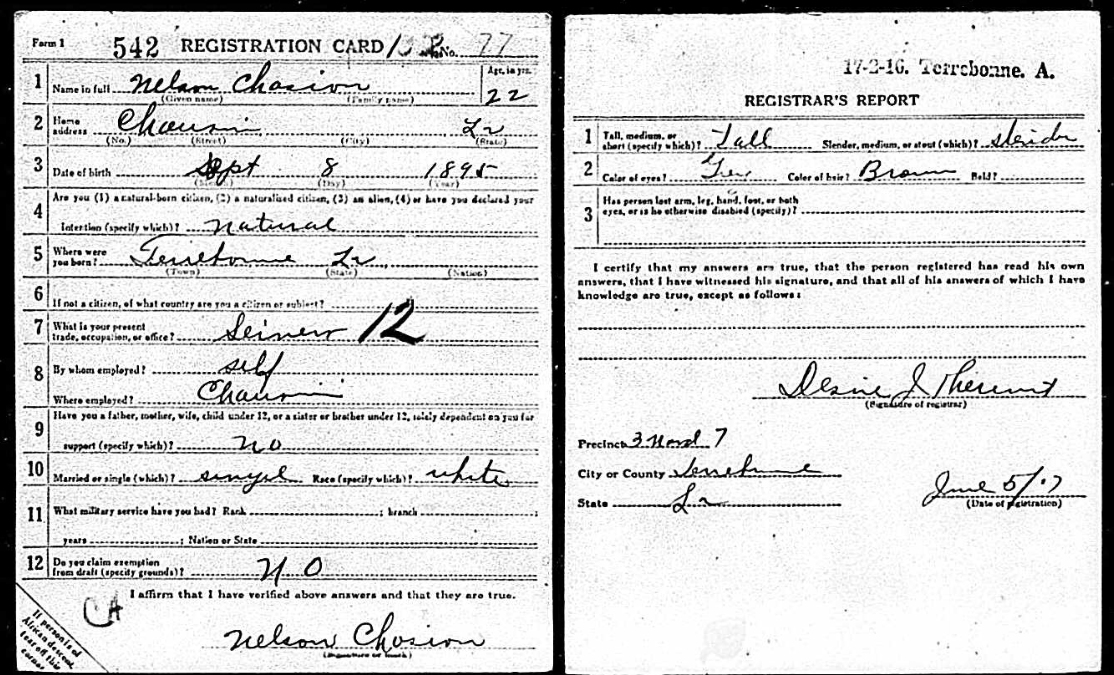 Form 1 542 REGISTRATION CARD No. 77
1 Name in full Nelson Chasion Age, in yrs. 22
(Given name) (Family name)
2 Home address Chauvin La
(No.) (Street) (City) (State)
3 Date of birth Sept 8 1895
(Month) (Day) (Year)
4 Are you (1) a natural-born citizen, (2) a naturalized citizen, (3) an alien, (4) or have you declared your
intention (specify which)? natural
5 Where were you born? Terrebonne La
(Town) (State) (Nation)
6 If not a citizen, of what country are you a citizen or subject?
7 What is your present trade, occupation, or office? Seiner 12
8 By whom employed? self
Where employed? Chauvin
9 Have you a father, mother, wife, child under 12, or a sister or brother under 12, solely dependent on you for
support (specify which)? no
10 Married or single (which)? singel Race (specify which)? white
11 What military service have you had? Rank ; branch ;
years ; Nation or State
12 Do you claim exemption from draft (specify grounds)? NO
I affirm that I have verified above answers and that they are true.
CA
Nelson Chosion
(Signature or mark)
If person is of
African descent,
tear off this
corner
17-2-16. Terrebonne. A.
REGISTRAR'S REPORT
1 Tall, medium, or short (specify which)? Tall Slender, medium, or stout (which)?
2 Color of eyes? Color of hair? Brown Bald?
3 Has person lost arm, leg, hand, foot, or both
eyes, or is he otherwise disabled (specify)?
I certify that my answers are true, that the person registered has read his own
answers, that I have witnessed his signature, and that all of his answers of which I have
knowledge are true, except as follows:
Desire J Theriot
(Signature of registrar)
Precinct 3 Ward 7
City or County Terrebonne
State La
June 5/17
(Date of registration)